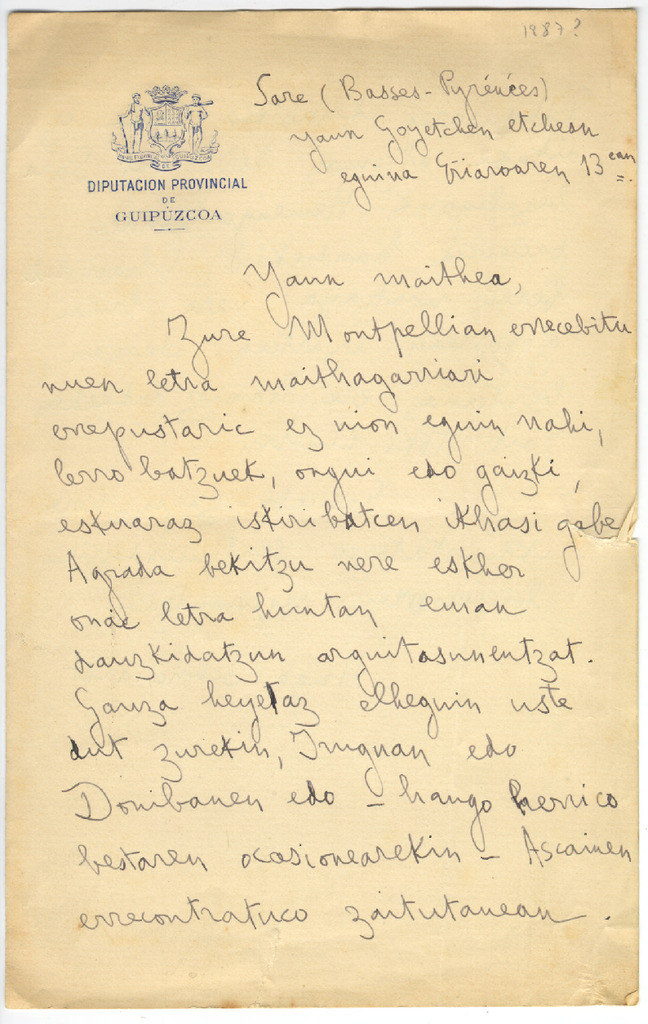 1887?
Sare (Basses-Pyrénées)
yaun Goyetchen etchean
eguina Garoaren 13 ean
DIPUTACION PROVINCIAL
DE
GUIPÚZCOA
Yaun maithea,
Zure Montpellian errecebitu
nuen letra maithagarriari
errepustaric ez nion eguin nahi,
lerro batzuek, ongui edo gaizki,
eskuaraz iskiribatcen ikhasi gabe
Agrada bekitzu nere eskher
onac letra huntan eman
dauzkidatzun arguitasunentzat.
Gauza heyetaz elheguin uste
dut zurekin, Irugnan edo
Donibanen edo – hango herrico
bestaren ocasionearekin – Ascainen
errecontratuco zaitutanean.